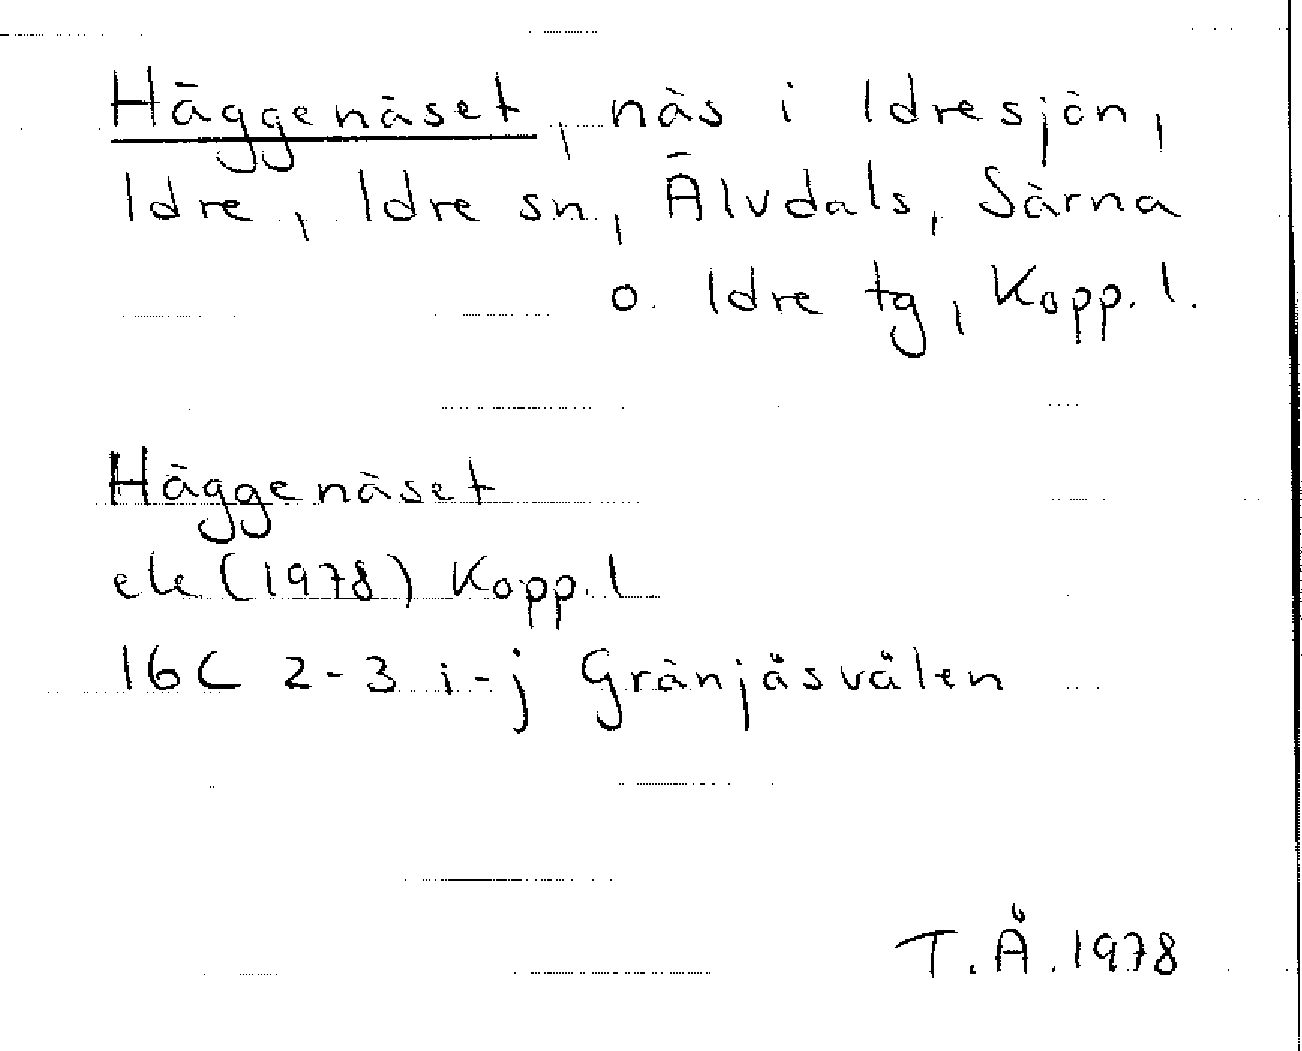 Häggenäset, näs i Idresjön,
Idre, Idre sn, Älvdals, Särna
o. Idre tg, Kopp. l.
Häggenäset
ek (1978) Kopp. l
16C 2-3 i-j Gränjåsvålen
T.Å. 1978